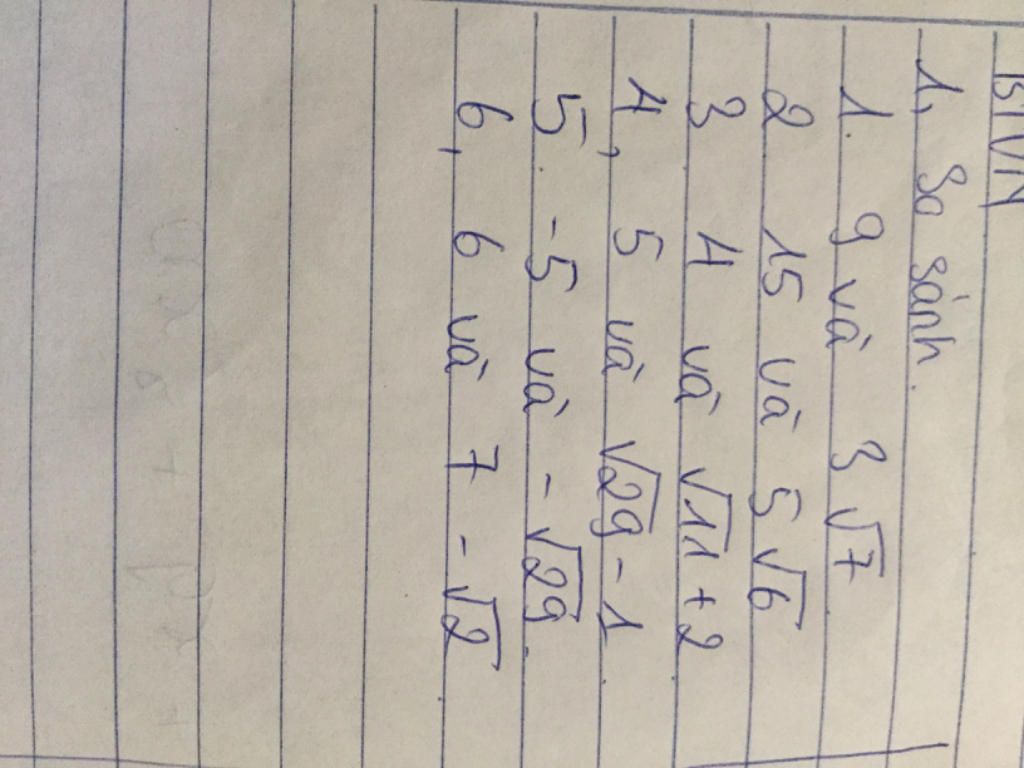 BTVN
1, So sánh.
1. 9 và 3√7
2 15 và 5√6
3 4 và √11 + 2
4, 5 và √29 - 1
5. -5 và -√29.
6, 6 và 7 - √2.